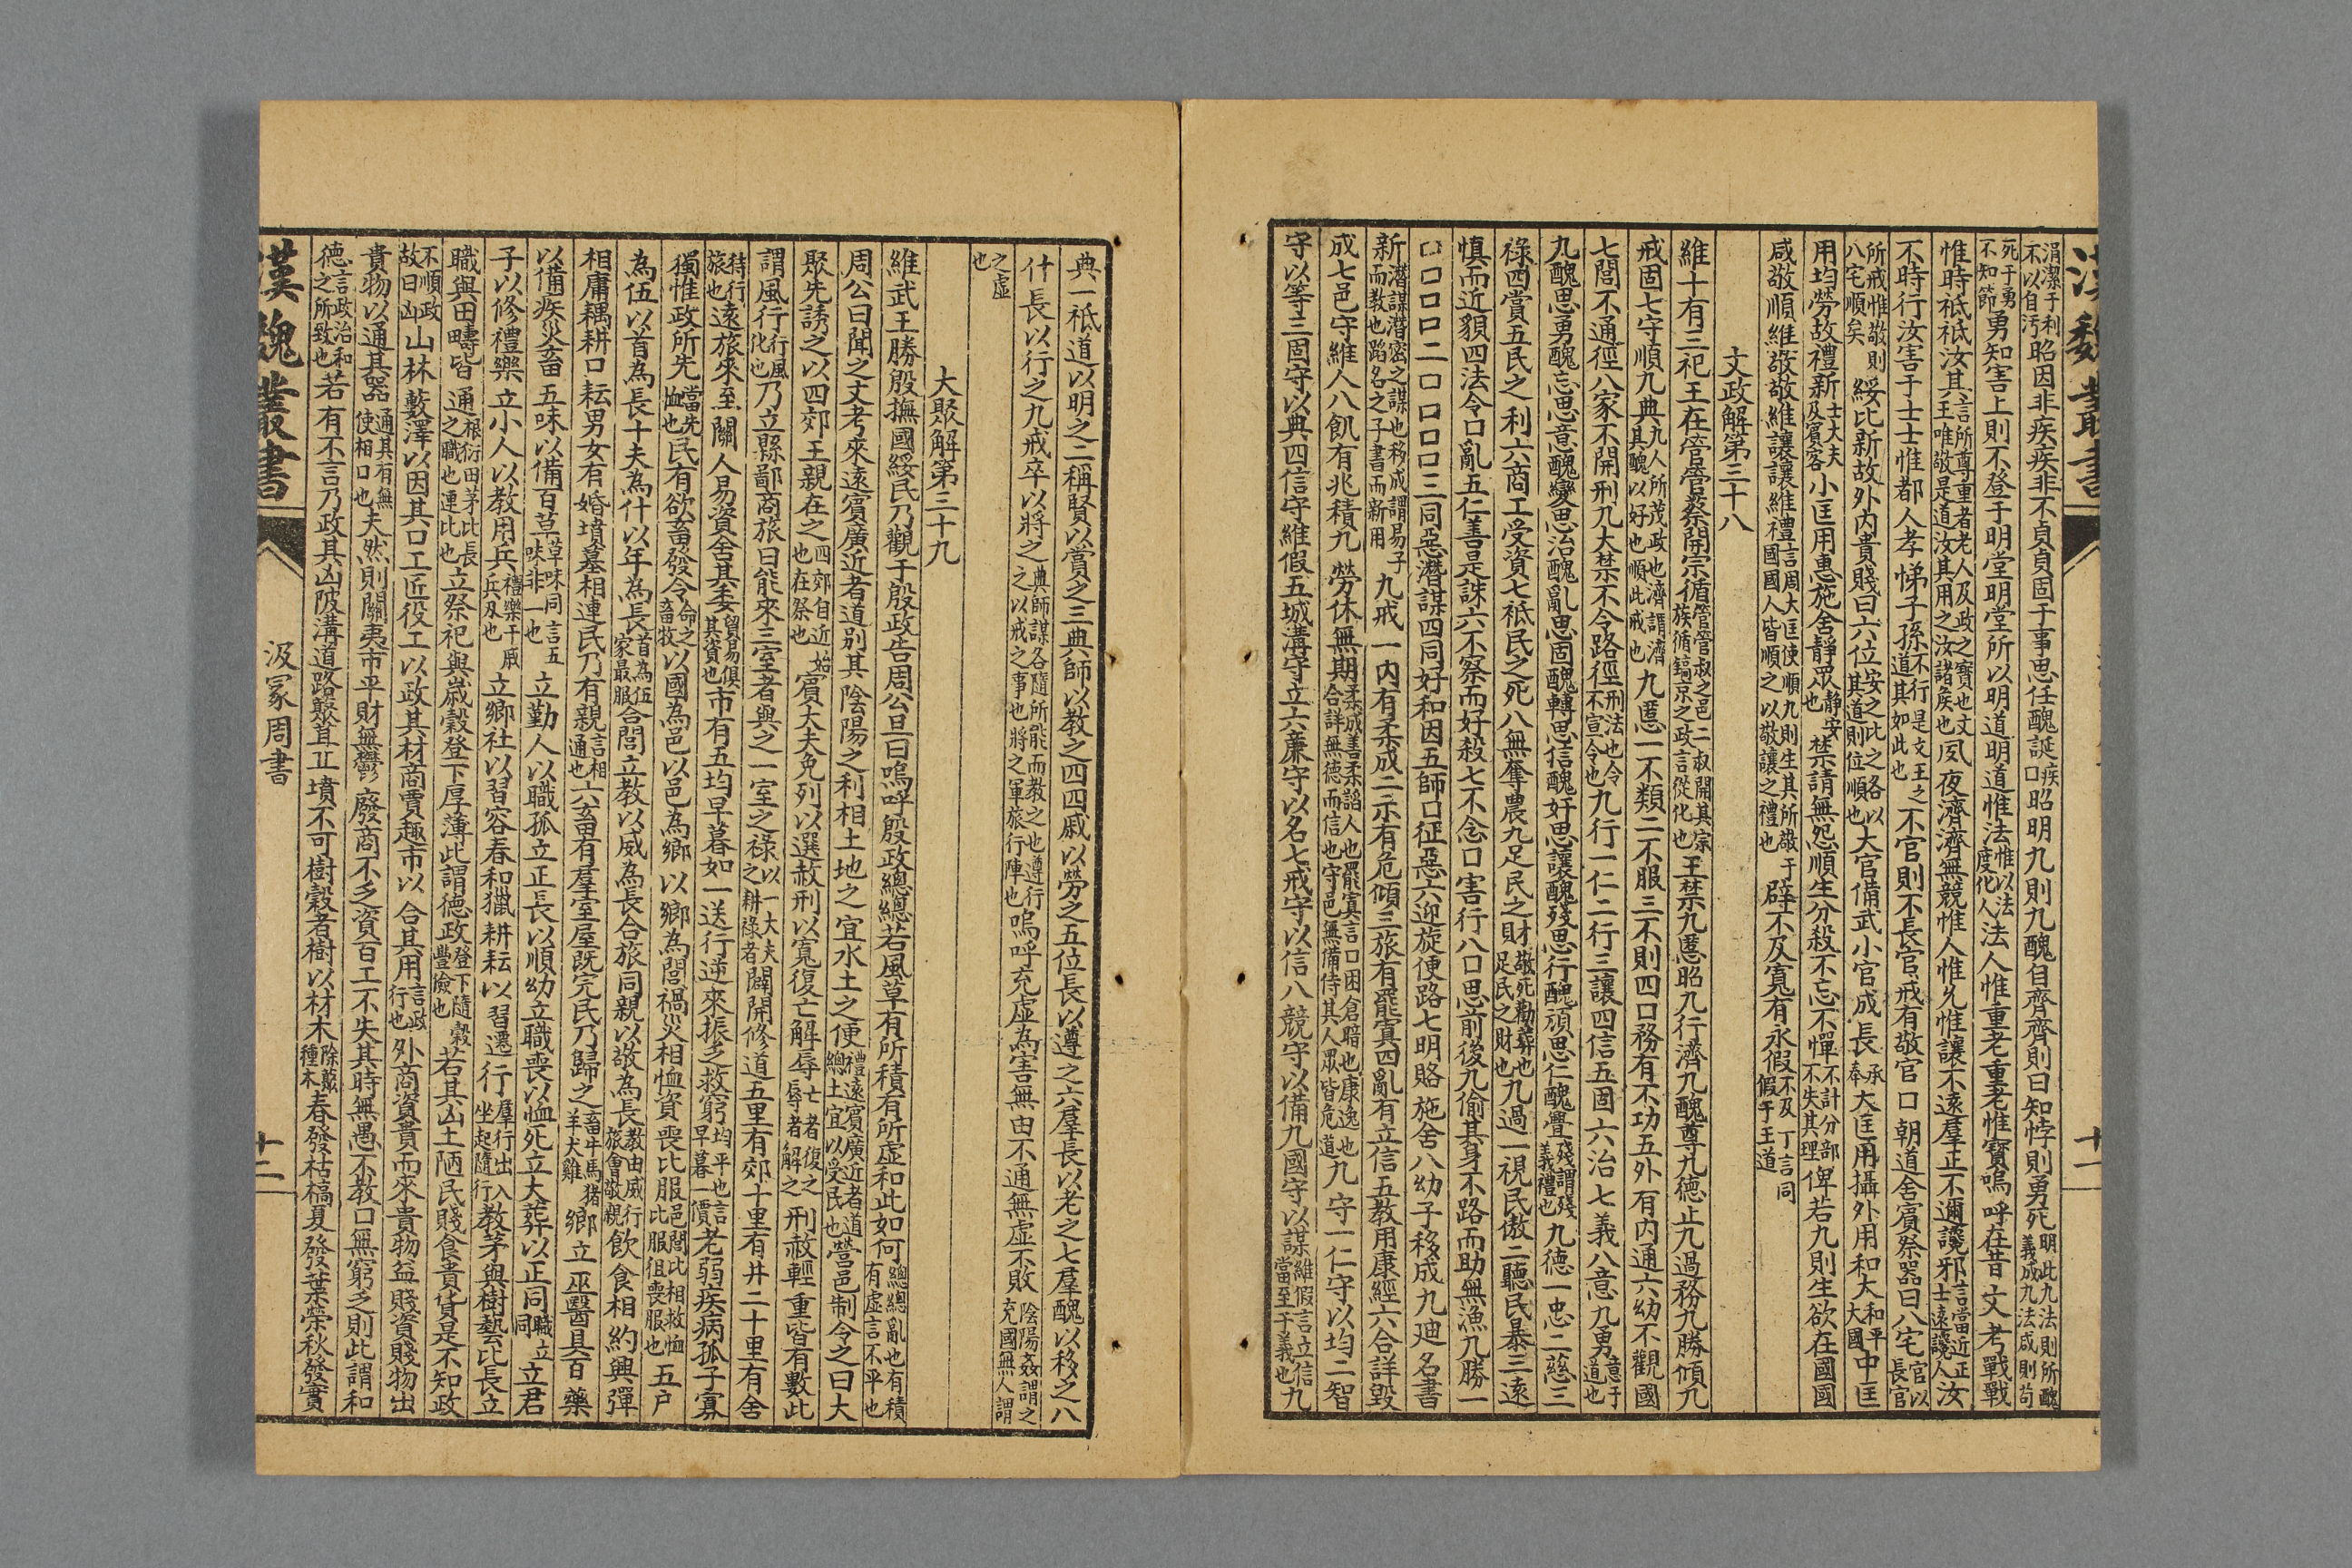 漢魏叢書
十一
涓潔于利不以自汚昭因非疾疾非不貞貞固于事思任醜誕口疾昭明九則九醜自齊齊則曰知悖則勇死明此九法則所醜義成九法咸則苟
死于勇不知節勇知害上則不登于明堂明堂所以明道明道惟法惟以法度化人法人惟重老重老惟寶嗚呼在昔文考戰戰
惟時祗祗汝其言所尊重者老人及政之寶也文王唯敬是道汝其用之汝諸侯也夙夜濟濟無競惟人惟允惟讓不遠羣正不邇讒邪言當近正士遠讒人汝
不時行汝害于士士惟都人孝悌子孫不行是文王之道其如此也不官則不長官戒有敬官口朝道舍賓祭器曰八宅官以長官
所戒惟敬則八宅順矣綏比新故外內貴賤曰六位安之此之各以其道則位順也大官備武小官成長承奉大匡用攝外用和大和平大國中匡
用均勞故禮新士大夫及賓客小匡用惠施舍靜眾靜安也禁請無怨順生分殺不忘不憚不計分部不失其理俾若九則生欲在國國
咸敬順維敬敬維讓讓維禮言周大匡使順九則生其所敬于國國人皆順之以敬讓之禮也辟不及寬有永假不及丁言同假于王道
文政解第三十八
維十有三祀王在管管蔡開宗循管管叔之邑二叔開其宗族循鎬京之政言從化也王禁九慝昭九行濟九醜尊九德止九過務九勝傾九
戒固七守順九典九人所茂政也濟謂濟其醜以好也順此戒也九慝一不類二不服三不則四口務有不功五外有內通六幼不觀國
七閭不通徑八家不開刑九大禁不令路徑刑法也令不宣令也九行一仁二行三讓四信五固六治七義八意九勇意于道也
九醜思勇醜忘思意醜變思治醜亂思固醜轉思信醜奸思讓醜殘思行醜頑思仁醜疊殘謂殘義禮也九德一忠二慈三
祿四賞五民之利六商工受資七祗民之死八無奪農九足民之財敬死勸葬也足民之財也九過一視民傲二聽民暴三遠
慎而近貌四法令口亂五仁善是誅六不察而好殺七不念口害行八口思前後九偷其身不路而助無漁九勝一
口口口口二口口口口三同惡潛謀四同好和因五師口征惡六迎旋便路七明賂施舍八幼子移成九廸名書
新潛謀潛密之謀也移成謂易子而教也蹈名之子書而新用九戒一內有柔成二示有危傾三旅有罷寘四亂有立信五教用康經六合詳毀
成七邑守維人八飢有兆積九勞休無期柔成善柔諂人也罷寘言口困倉暗也康逸也合詳無德而信也守邑無備侍其人眾皆危道九守一仁守以均二智
守以等三固守以典四信守維假五城溝守立六廉守以名七戒守以信八競守以備九國守以謀維假言立信當至于義也九
典一祗道以明之二稱賢以賞之三典師以教之四四戚以勞之五位長以遵之六羣長以老之七羣醜以移之八
什長以行之九戒卒以將之典師謀各隨所能而教之也遵行之以戒之事也將之軍旅行陣也嗚呼充虛為害無由不通無虛不敗陰陽姦謂之充國無人謂
之虛也
大聚解第三十九
維武王勝殷撫國綏民乃觀于殷政告周公旦曰嗚呼殷政總總若風草有所積有所虛和此如何總總亂也有積有虛言不平也
周公曰聞之文考來遠賓廣近者道別其陰陽之利相土地之宜水土之便禮遠賓廣近者道總土宜以受民也營邑制令之曰大
聚先誘之以四郊王親在之四郊自近始也在祭也賓大夫免列以選赦刑以寬復亡解辱亡者復之辱者解之刑赦輕重皆有數此
謂風行行風化也乃立縣鄙商旅曰能來三室者與之一室之祿以一大夫之耕祿者闢開修道五里有郊十里有井二十里有舍
待行旅也遠旅來至關人易資舍其委貿易俱其資也市有五均早暮如一送行逆來振乏救窮均平也言早暮一價老弱疾病孤子寡
獨惟政所先當先恤也民有欲畜發令命之畜牧以國為邑以邑為鄉以鄉為閭禍災相恤資喪比服邑閭比相救恤比服徂喪服也五戶
為伍以首為長十夫為什以年為長首為伍家最服合閭立教以威為長合旅同親以敬為長教由威行旅會敬親飲食相約興彈
相庸耦耕口耘男女有婚墳墓相連民乃有親言相通也六畜有羣室屋既完民乃歸之畜牛馬豬羊犬雞鄉立巫醫具百藥
以備疾災畜五味以備百草草味同言五味非一也立勤人以職孤立正長以順幼立職喪以恤死立大葬以正同職立同立君
子以修禮樂立小人以教用兵禮樂干戚兵刄也立鄉社以習容春和獵耕耘以習遷行羣行出入坐起隨行教茅與樹藝比長立
職與田疇皆通根衍田茅比長之職也連比也立祭祀與歲穀登下厚薄此謂德政登下隨穀豐儉也若其凶土陋民賤食貴貨是不知政
不順政故曰凶山林藪澤以因其口工匠役工以政其材商賈趣市以合其用言政行也外商資貴而來貴物益賤資賤物出
貴物以通其器通其有無使相口也夫然則關夷市平財無鬱廢商不乏資百工不失其時無愚不教口無窮乏則此謂和
德言政治和之所致也若有不言乃政其凶陂溝道路藂苴丘墳不可樹穀者樹以材木除藂種木春發枯槁夏發葉榮秋發實
漢魏叢書
汲冢周書
十二